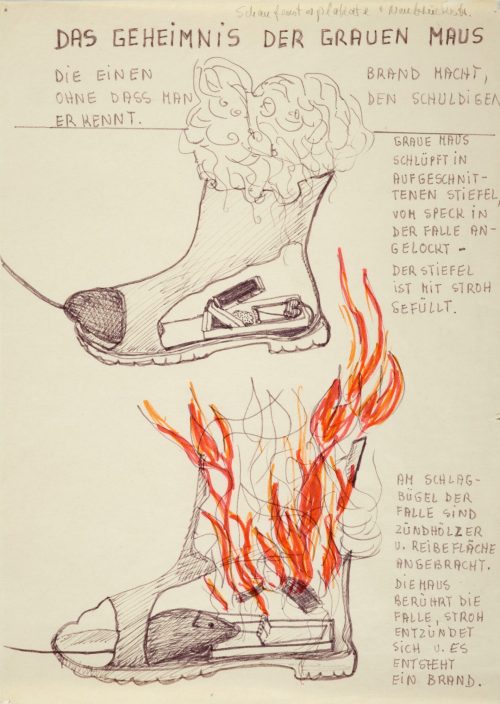 DAS GEHEIMNIS DER GRAUEN MAUS
DIE EINEN BRAND MACHT,
OHNE DASS MAN DEN SCHULDIGEN
ERKENNT.
GRAUE MAUS
SCHLÜPFT IN
AUFGESCHNIT-
TENEN STIEFEL,
VOM SPECK IN
DER FALLE AN-
GELOCKT -
DER STIEFEL
IST MIT STROH
GEFÜLLT.
AM SCHLAG-
BÜGEL DER
FALLE SIND
ZÜNDHÖLZER
U. REIBEFLÄCHE
ANGEBRACHT.
DIE MAUS
BERÜHRT DIE
FALLE, STROH
ENTZÜNDET
SICH U. ES
ENTSTEHT
EIN BRAND.